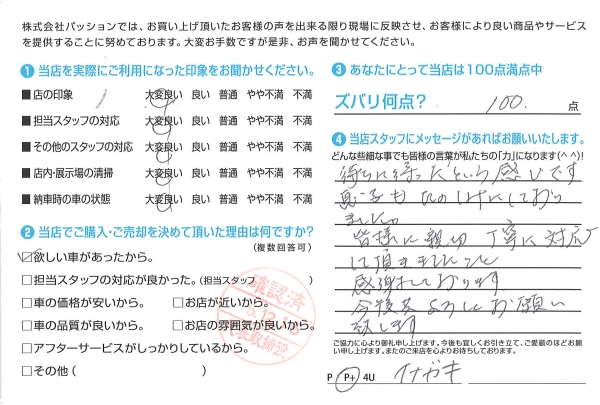 株式会社パッションでは、お買い上げ頂いたお客様の声を出来る限り現場に反映させ、お客様により良い商品やサービス
を提供することに努めております。大変お手数ですが是非、お声を聞かせてください。
❶ 当店を実際にご利用になった印象をお聞かせください。
■ 店の印象 大変良い 良い 普通 やや不満 不満
■ 担当スタッフの対応 大変良い 良い 普通 やや不満 不満
■ その他のスタッフの対応 大変良い 良い 普通 やや不満 不満
■ 店内・展示場の清掃 大変良い 良い 普通 やや不満 不満
■ 納車時の車の状態 大変良い 良い 普通 やや不満 不満
❷ 当店でご購入・ご売却を決めて頂いた理由は何ですか?
(複数回答可)
☑欲しい車があったから。
□担当スタッフの対応が良かった。(担当スタッフ )
□車の価格が安いから。 □お店が近いから。
□車の品質が良いから。 □お店の雰囲気が良いから。
□アフターサービスがしっかりしているから。
□その他( )
確認済
5.12.
代表取締役
❸ あなたにとって当店は100点満点中
ズバリ何点? 100. 点
❹ 当店スタッフにメッセージがあればお願いいたします。
どんな些細な事でも皆様の言葉が私たちの「力」になります(^^)!
待ちに待ったという感じです
息子も たのしみにしており
ました。
皆様に親切 丁寧に対応
して頂きましたこと
感謝しております
今後もよろしくお願い
致します
ご協力に心より御礼申し上げます。今後も宜しくお引き立て、ご愛顧のほどお願
い申し上げます。またのご来店を心よりお待ちしております。
P P+ 4U イナガキ